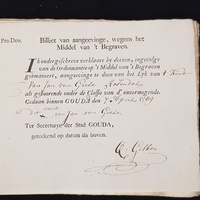 Pro Deo.
Billiet van aangeevinge, wegens het
Middel van 't Begraven.
Ik ondergeschreven verklaare by deezen, ingevolge
van de Ordonnantie op 't Middel van 't Begraven
geëmaneert, aangevinge te doen van het Lyk van 't Kind
van Jan van
als gehoorende onder de Classis van d' onvermogende.
Gedaan binnen GOUDA den 7 April 1789
Jan van
Ter Secretarye der Stad GOUDA,
geteekend op datum als boven.